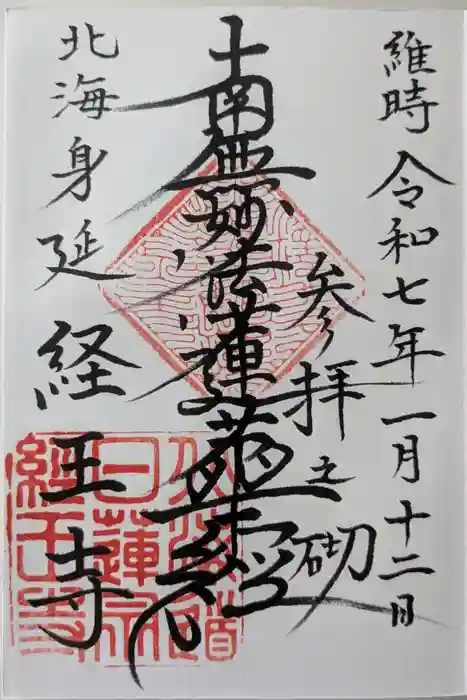 維時令和七年一月十二日
参拝之砌
南無妙法蓮華経
北海身延
経王寺
日蓮宗
經王寺